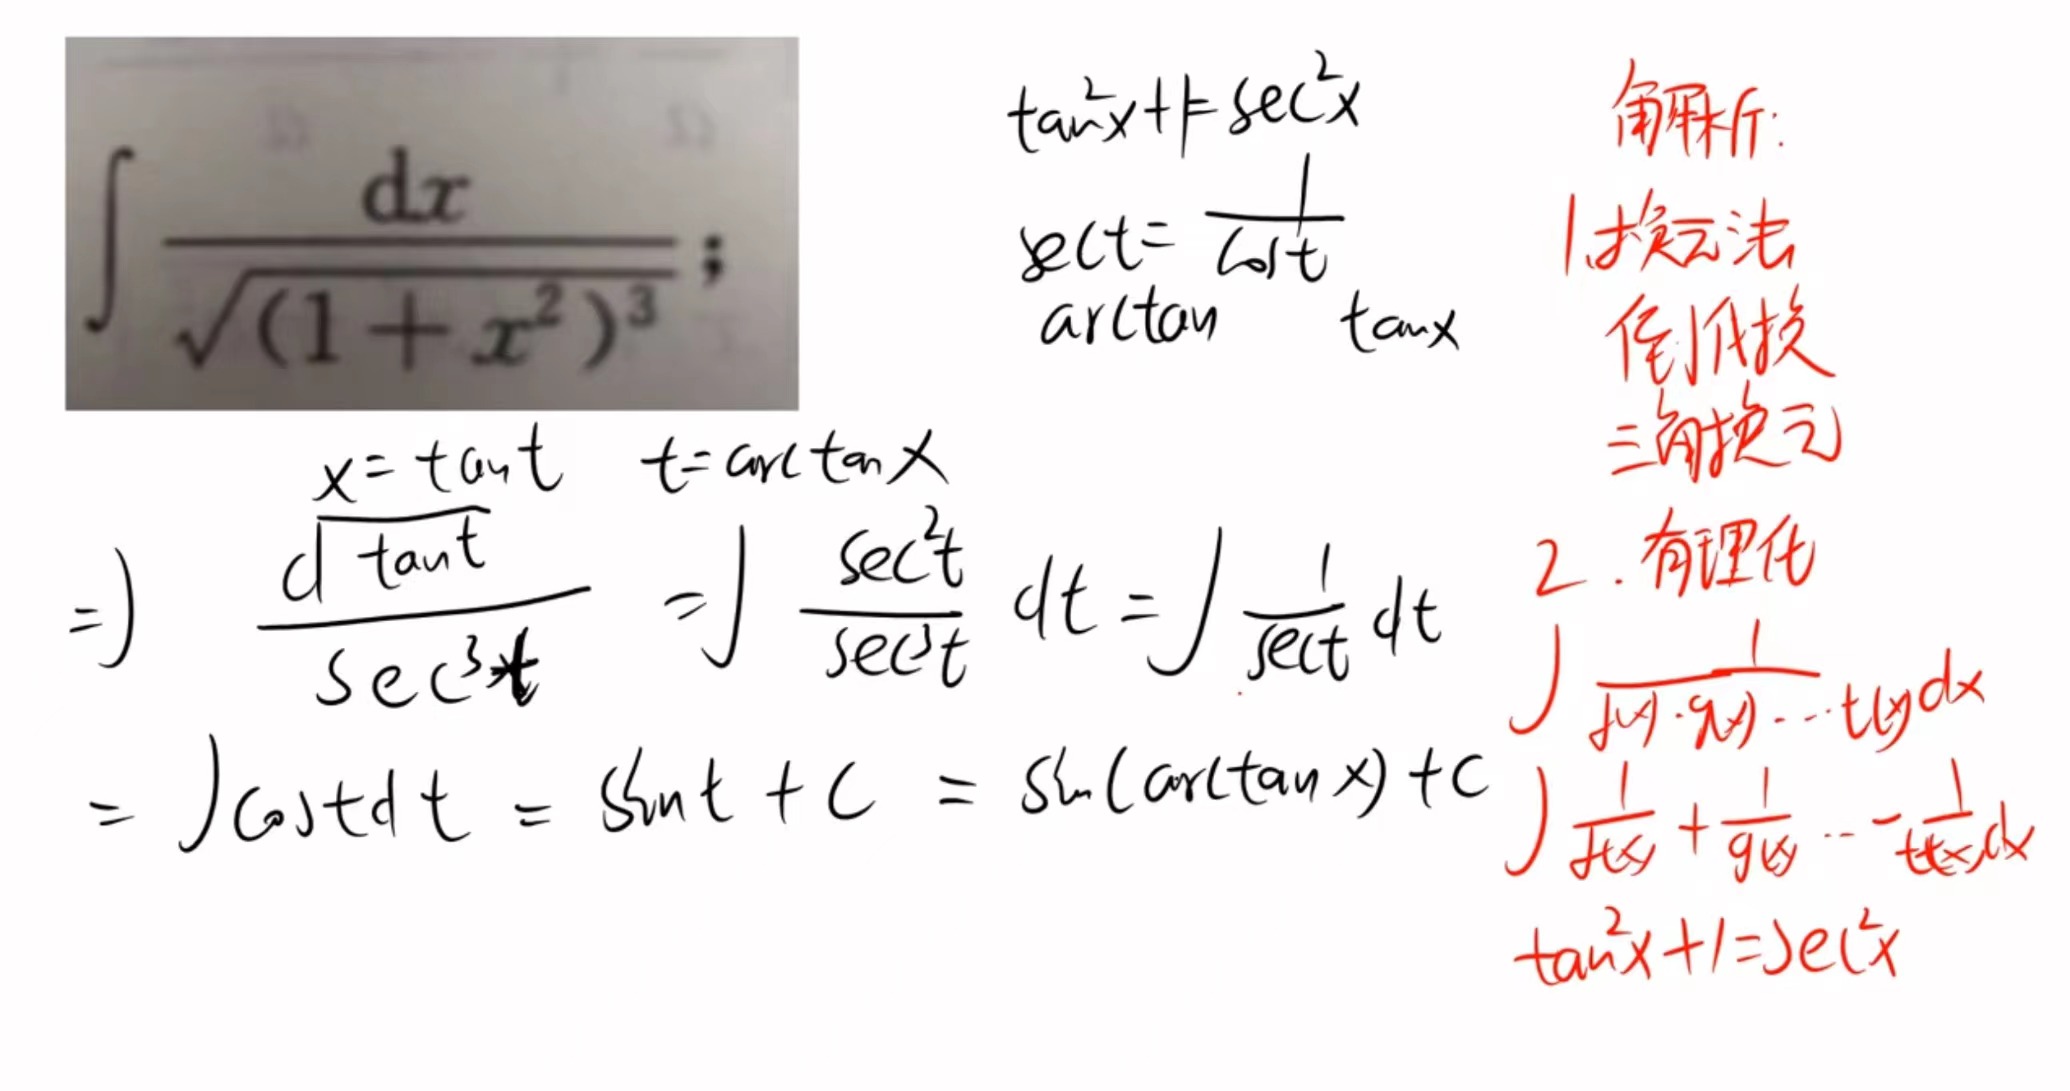 ∫ dx / √(1 + x²)³ ;
tan²x+1=sec²x
sect= 1/cost
arctan tanx
x=tant t=arctanx
=∫ dtant / sec³t =∫ sec²t / sec³t dt =∫ 1/sect dt
= ∫costdt = sint + C = sin(arctanx)+C
解析:
1.换元法
倒代换
三角换元
2.有理化
∫ 1 / f(x)·g(x)···t(x) dx
∫ 1/f(x) + 1/g(x) ··· 1/t(x) dx
tan²x+1=sec²x